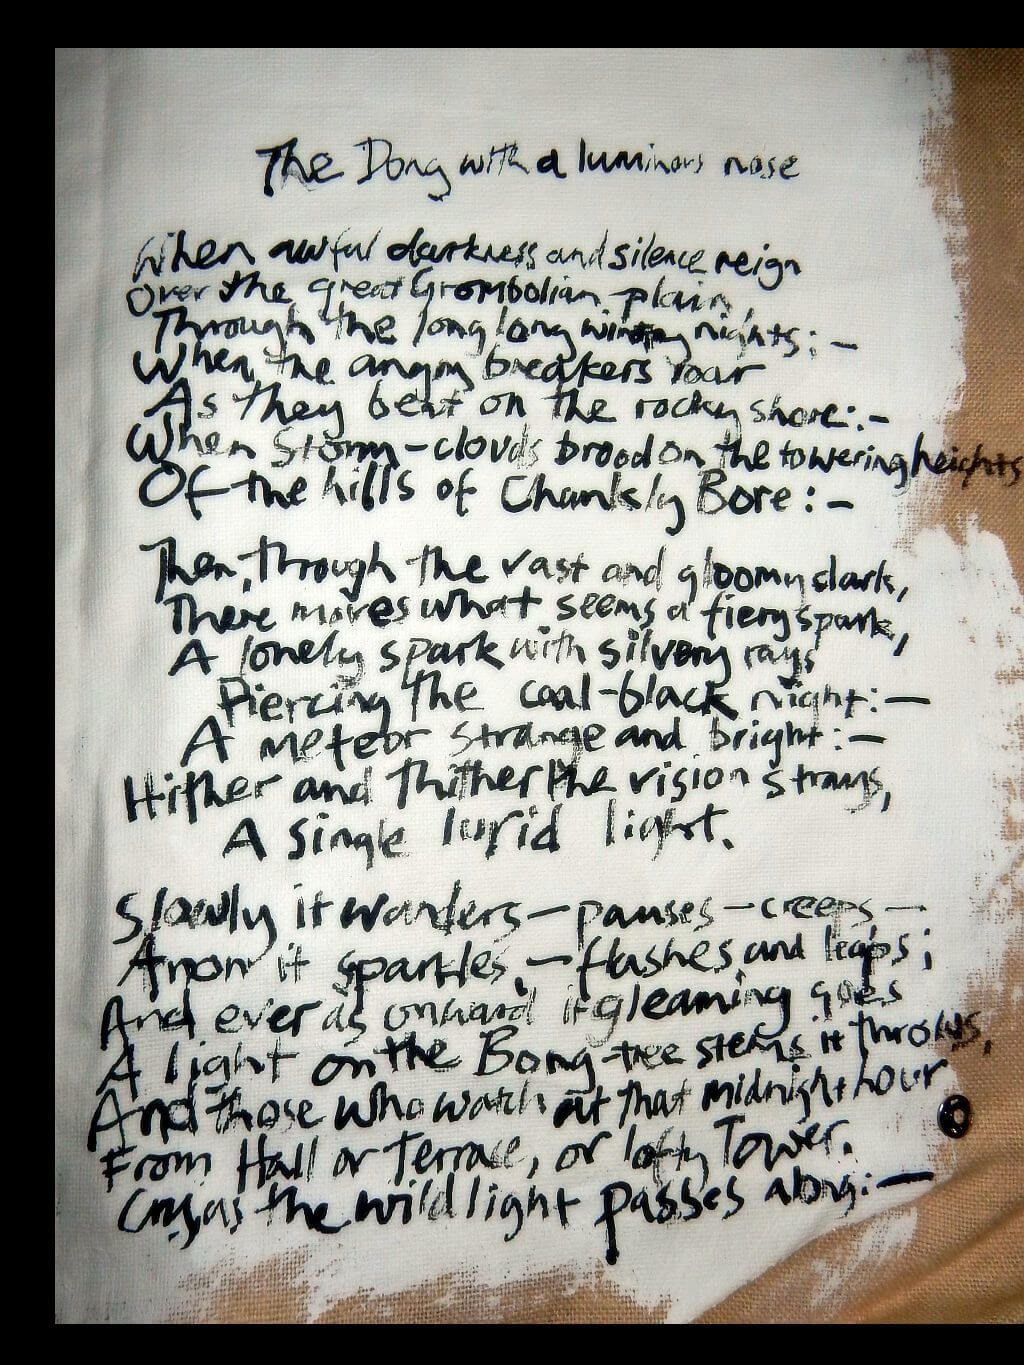 The Dong with a luminous nose
When awful darkness and silence reign
Over the great Grombolian plain,
Through the long long wintry nights:—
When the angry breakers roar
As they beat on the rocky shore:—
When Storm-clouds brood on the towering heights
Of the hills of Chankly Bore:—
Then, through the vast and gloomy dark,
There moves what seems a fiery spark,
A lonely spark with silvery rays
Piercing the coal-black night:—
A meteor strange and bright:—
Hither and thither the vision strays,
A single lurid light.
Slowly it wanders—pauses—creeps—
Anon it sparkles,—flashes and leaps;
And ever as onward it gleaming goes
A light on the Bong-tree stems it throws,
And those who watch at that midnight hour
From Hall or Terrace, or lofty Tower.
Cry, as the wild light passes along:—